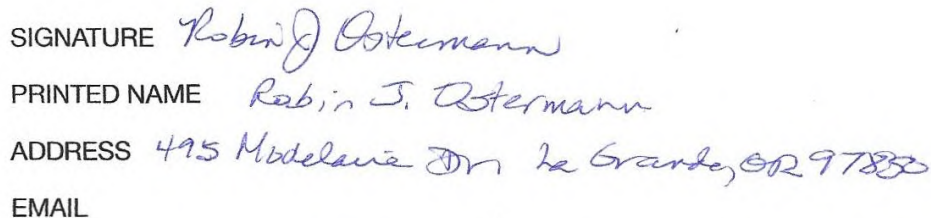 SIGNATURE Robin J Ostermann
PRINTED NAME Robin J. Ostermann
ADDRESS 495 Modelaire Dr. La Grande, OR 97850
EMAIL